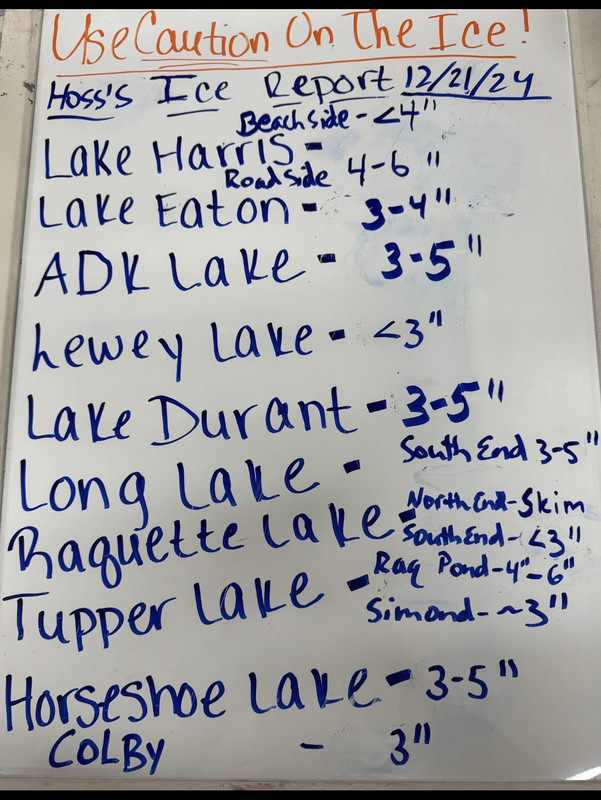 Use Caution On The Ice!
Hoss's Ice Report 12/21/24
Beachside - <4"
Lake Harris -
Roadside 4-6"
Lake Eaton - 3-4"
ADK Lake - 3-5"
Lewey Lake - <3"
Lake Durant - 3-5"
Long Lake - South End 3-5"
North End - Skim
Raquette Lake - South End - <3"
Tupper Lake - Raq Pond - 4"-6"
Simond - ~3"
Horseshoe Lake - 3-5"
COLBY - 3"